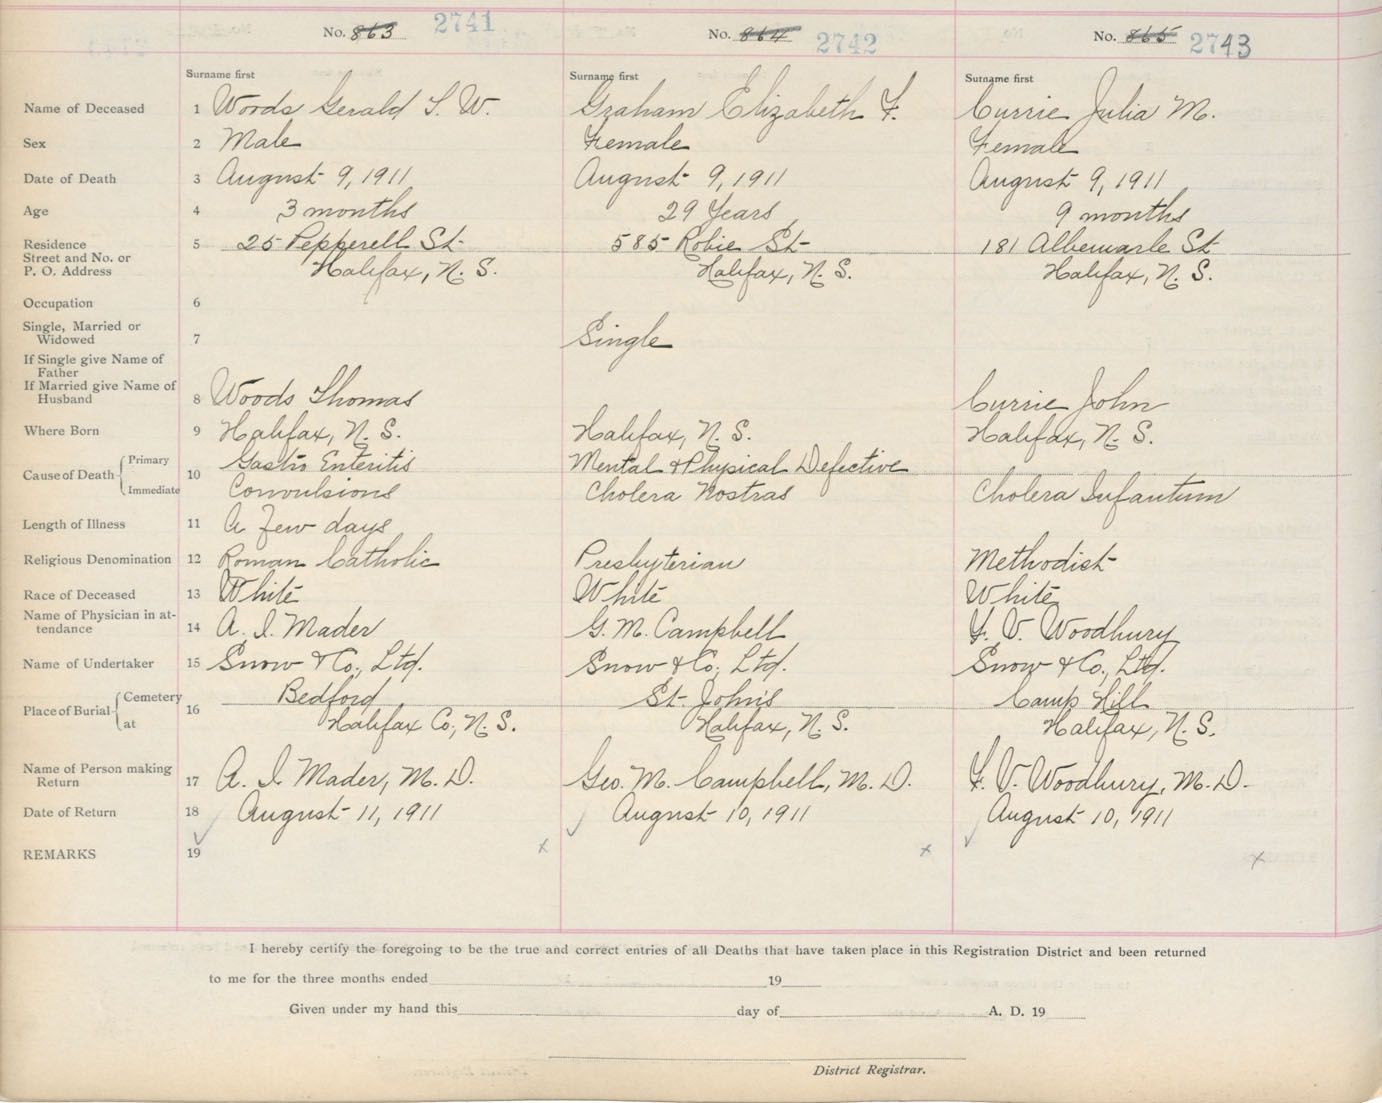 No. 863 2741
No. 864 2742
No. 865 2743
Surname first
Surname first
Surname first
Name of Deceased 1 Woods Gerald T. W. Graham Elizabeth F. Currie Julia M.
Sex 2 Male Female Female
Date of Death 3 August 9, 1911 August 9, 1911 August 9, 1911
Age 4 3 months 29 Years 9 months
Residence 5 25 Pepperell St. 585 Robie St 181 Albemarle St
Street and No. or
P. O. Address Halifax, N. S. Halifax, N. S. Halifax, N. S.
Occupation 6
Single, Married or
Widowed 7 Single
If Single give Name of
Father
If Married give Name of
Husband 8 Woods Thomas Currie John
Where Born 9 Halifax, N. S. Halifax, N. S. Halifax, N. S.
Cause of Death Primary 10 Gastro Enteritis Mental & Physical Defective
Immediate Convulsions Cholera Nostras Cholera Infantum
Length of Illness 11 A few days
Religious Denomination 12 Roman Catholic Presbyterian Methodist
Race of Deceased 13 White White White
Name of Physician in at-
tendance 14 A. I. Mader G. M. Campbell F. V. Woodbury
Name of Undertaker 15 Snow & Co., Ltd. Snow & Co., Ltd. Snow & Co., Ltd.
Place of Burial Cemetery 16 Bedford St. John's Camp Hill
at Halifax Co, N. S. Halifax, N. S. Halifax, N. S.
Name of Person making
Return 17 A. I Mader, M. D. Geo. M. Campbell, M. D. F. V. Woodbury, M. D.
Date of Return 18 August 11, 1911 August 10, 1911 August 10, 1911
REMARKS 19 x x x
I hereby certify the foregoing to be the true and correct entries of all Deaths that have taken place in this Registration District and been returned
to me for the three months ended 19
Given under my hand this day of A. D. 19
District Registrar.